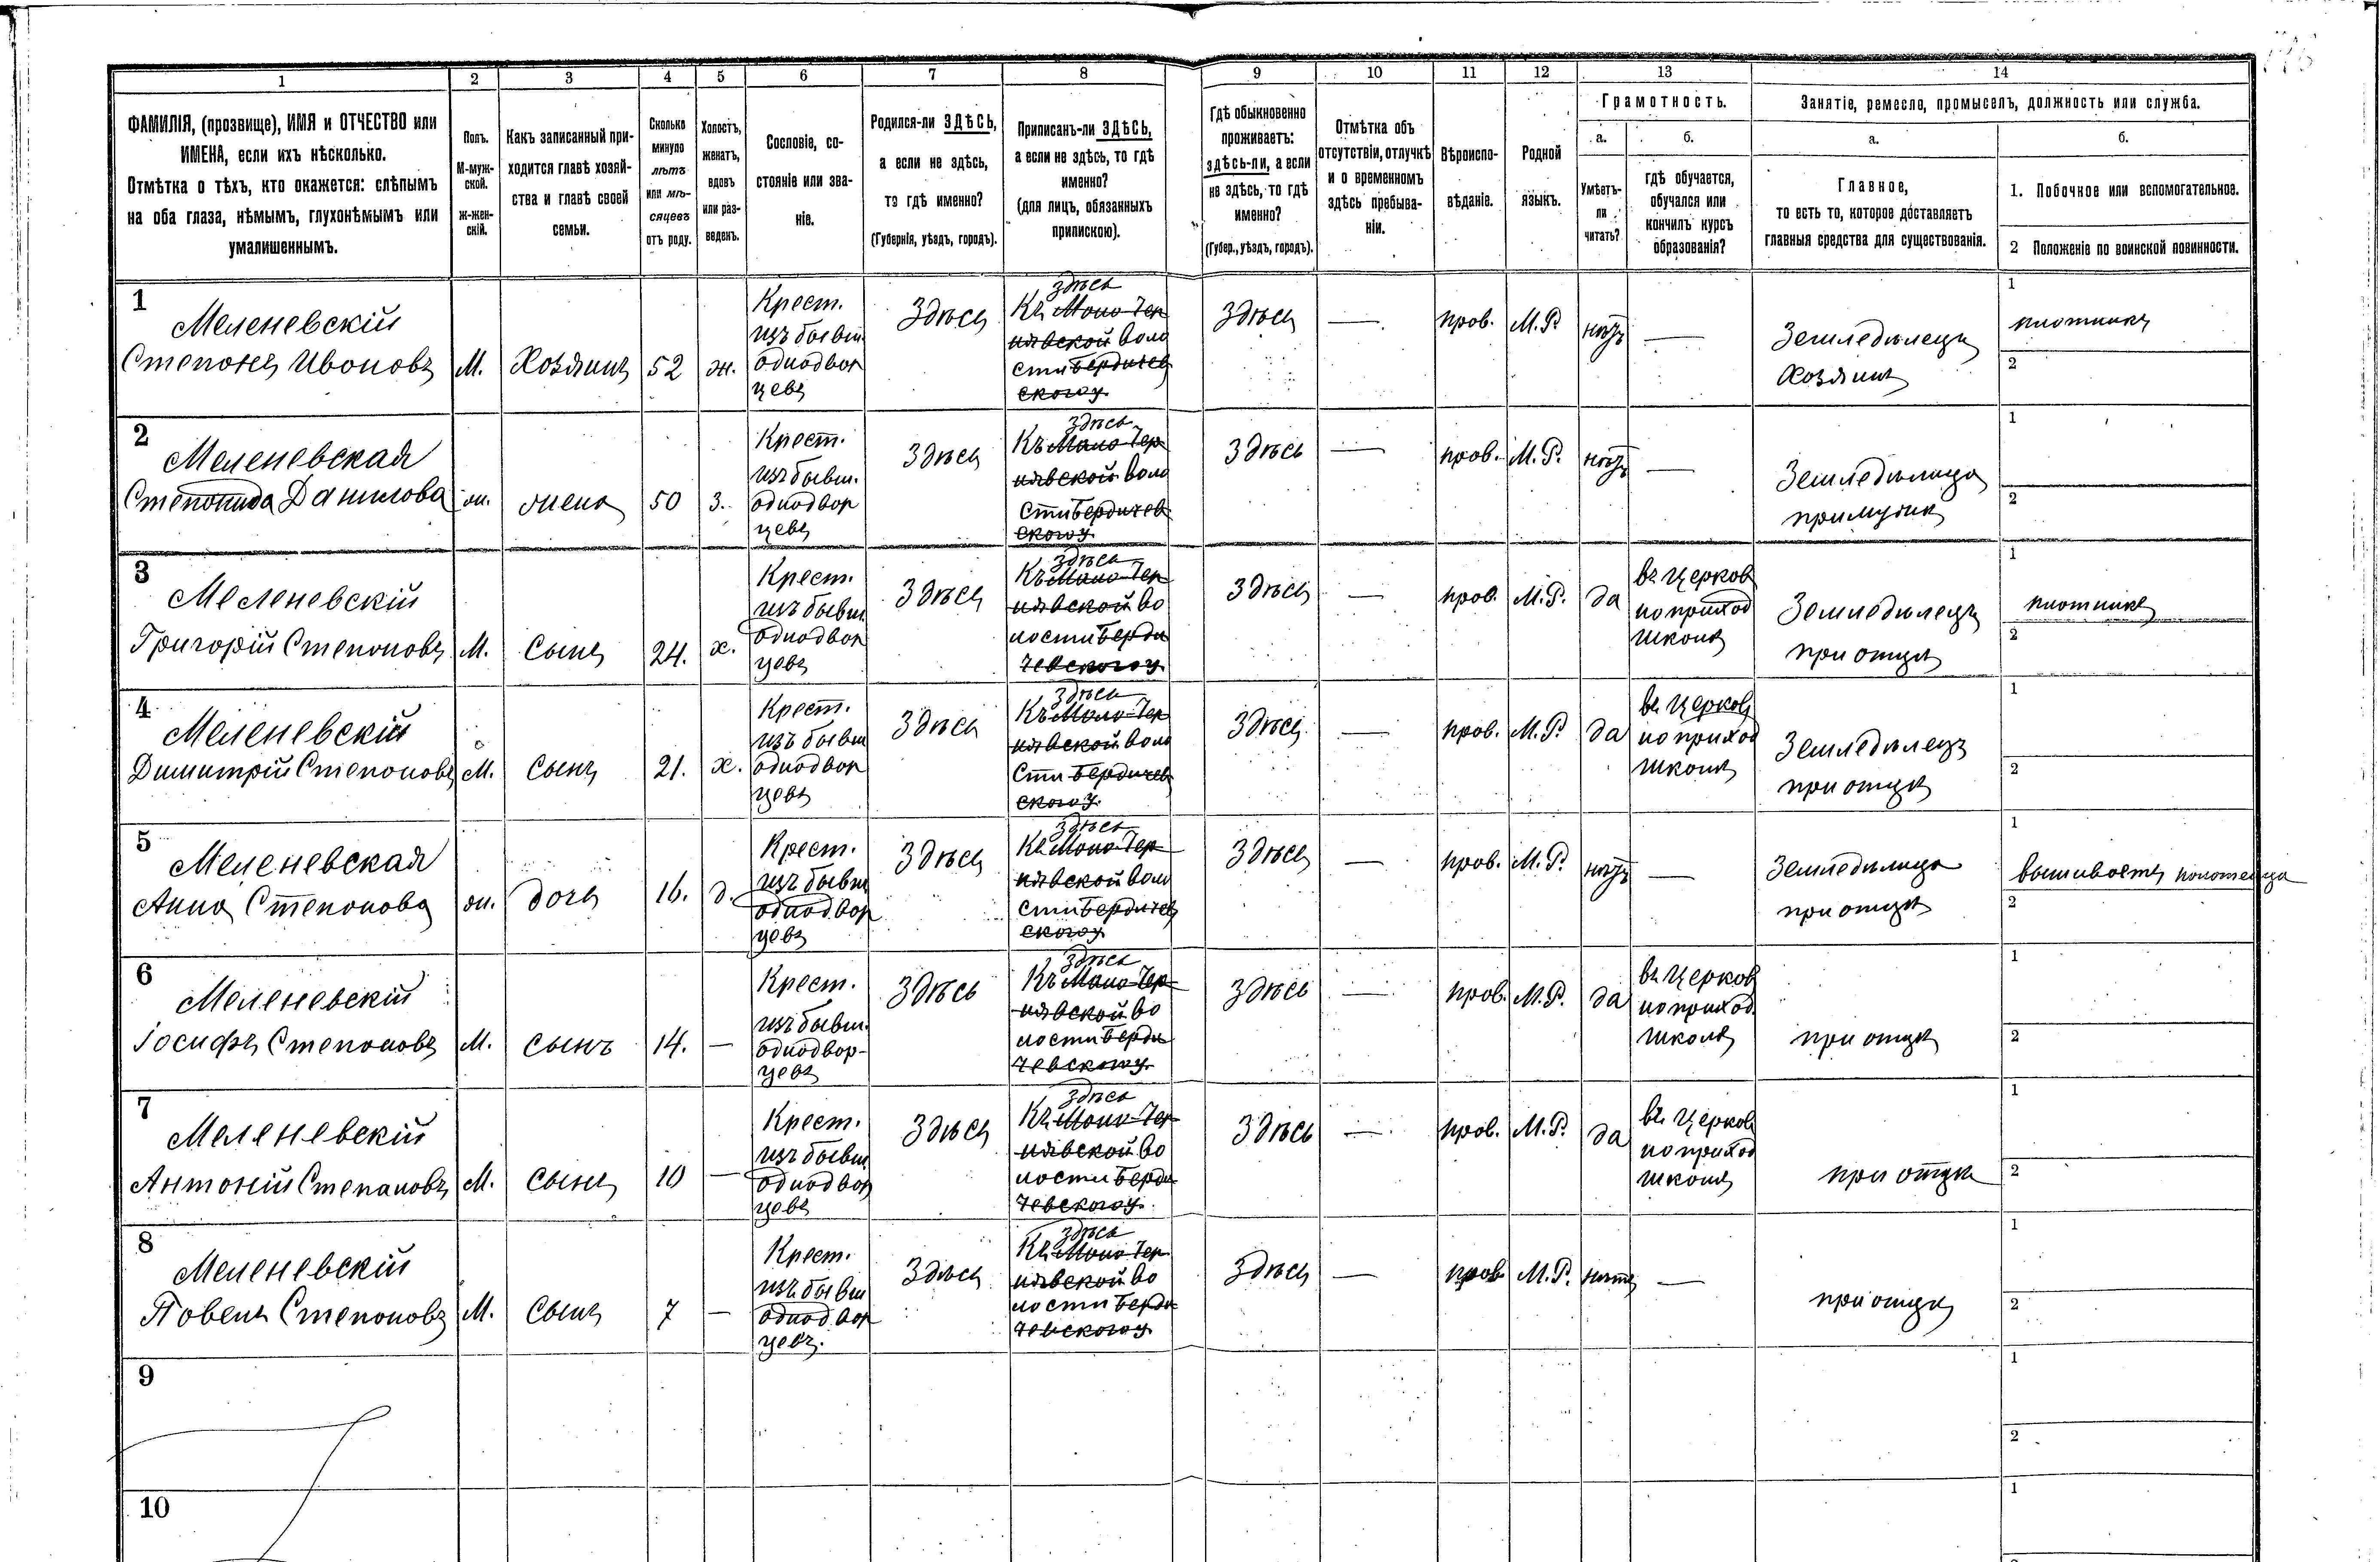 1 2 3 4 5 6 7 8 9 10 11 12 13 14
ФАМИЛІЯ, (прозвище), ИМЯ и ОТЧЕСТВО или
ИМЕНА, если ихъ нѣсколько.
Отмѣтка о тѣхъ, кто окажется: слѣпымъ
на оба глаза, нѣмымъ, глухонѣмымъ или
умалишеннымъ.
Полъ.
М-муж-
ской.
ж-жен-
скій.
Какъ записанный при-
ходится главѣ хозяй-
ства и главѣ своей
семьи.
Сколько
минуло
лѣтъ
или мѣ-
сяцевъ
отъ роду.
Холостъ,
женатъ,
вдовъ
или раз-
веденъ.
Сословіе, со-
стояніе или зва-
ніе.
Родился-ли ЗДѢСЬ,
а если не здѣсь,
то гдѣ именно?
(Губернія, уѣздъ, городъ).
Приписанъ-ли ЗДѢСЬ,
а если не здѣсь, то гдѣ
именно?
(для лицъ, обязанныхъ
припискою).
Гдѣ обыкновенно
проживаетъ:
здѣсь-ли, а если
не здѣсь, то гдѣ
именно?
(Губер., уѣздъ, городъ).
Отмѣтка объ
отсутствіи, отлучкѣ
и о временномъ
здѣсь пребыва-
ніи.
Вѣроиспо-
вѣданіе.
Родной
языкъ.
Грамотность.
а.
Умѣетъ-
ли
читать?
б.
гдѣ обучается,
обучался или
кончилъ курсъ
образованія?
Занятіе, ремесло, промыселъ, должность или служба.
а.
Главное,
то есть то, которое доставляетъ
главныя средства для существованія.
б.
1. Побочное или вспомогательное.
2 Положеніе по воинской повинности.
1
Меленевскій
Степанъ Ивановъ
М.
Хозяинъ
52
ж.
Крест.
изъ бывш.
однодвор
цевъ
Здѣсь
здѣсь
Къ Мало-Чер
нявской воло
сти Бердичев
скаго у.
Здѣсь
—
прав.
М.Р.
нѣтъ
—
Земледѣлецъ
Хозяинъ
1
плотникъ
2
2
Меленевская
Степанида Данилова
ж.
жена
50
з.
Крест.
изъ бывш.
однодвор
цевъ
Здѣсь
здѣсь
Къ Мало-Чер
нявской воло
сти Бердичев
скаго у.
Здѣсь
—
прав.
М.Р.
нѣтъ
—
Земледѣлица
при мужѣ
1
2
3
Меленевскій
Григорій Степановъ
М.
Сынъ
24.
х.
Крест.
изъ бывш.
однодвор
цевъ
Здѣсь
здѣсь
Къ Мало-Чер
нявской во
лости Берди
чевскаго у.
Здѣсь
—
прав.
М.Р.
да
въ церков
но приход
школѣ
Земледѣлецъ
при отцѣ
1
плотникъ
2
4
Меленевскій
Димитрій Степановъ
М.
Сынъ
21.
х.
Крест.
изъ бывш
однодвор
цевъ
Здѣсь
здѣсь
Къ Мало-Чер
нявской воло
сти Бердичев
скаго у.
Здѣсь
—
прав.
М.Р.
да
въ церков
но приход
школѣ
Земледѣлецъ
при отцѣ
1
2
5
Меленевская
Анна Степанова
ж.
дочь
16.
д.
Крест.
изъ бывш
однодвор
цевъ
Здѣсь
здѣсь
Къ Мало-Чер
нявской воло
сти Бердичев
скаго у.
Здѣсь
—
прав.
М.Р.
нѣтъ
—
Земледѣлица
при отцѣ
1
вышиваетъ полотенца
2
6
Меленевскій
Іосифъ Степановъ
М.
сынъ
14.
—
Крест.
изъ бывш.
однодвор-
цевъ
Здѣсь
здѣсь
Къ Мало-Чер
нявской во
лости Берди
чевскаго у.
Здѣсь
—
прав.
М.Р.
да
въ церков
но приход.
школѣ
при отцѣ
1
2
7
Меленевскій
Антоній Степановъ
М.
Сынъ
10
—
Крест.
изъ бывш
однодвор
цевъ
Здѣсь
здѣсь
Къ Мало-Чер
нявской во
лости Берди
чевскаго у.
Здѣсь
—
прав.
М.Р.
да
въ церков
но приход
школѣ
при отцѣ
1
2
8
Меленевскій
Павелъ Степановъ
М.
Сынъ
7
—
Крест.
изъ бывш
однодвор
цевъ.
Здѣсь
здѣсь
Къ Мало-Чер
нявской во
лости Берди
чевскаго у.
Здѣсь
—
прав
М.Р.
нѣтъ
—
при отцѣ
1
2
9
1
2
10
1